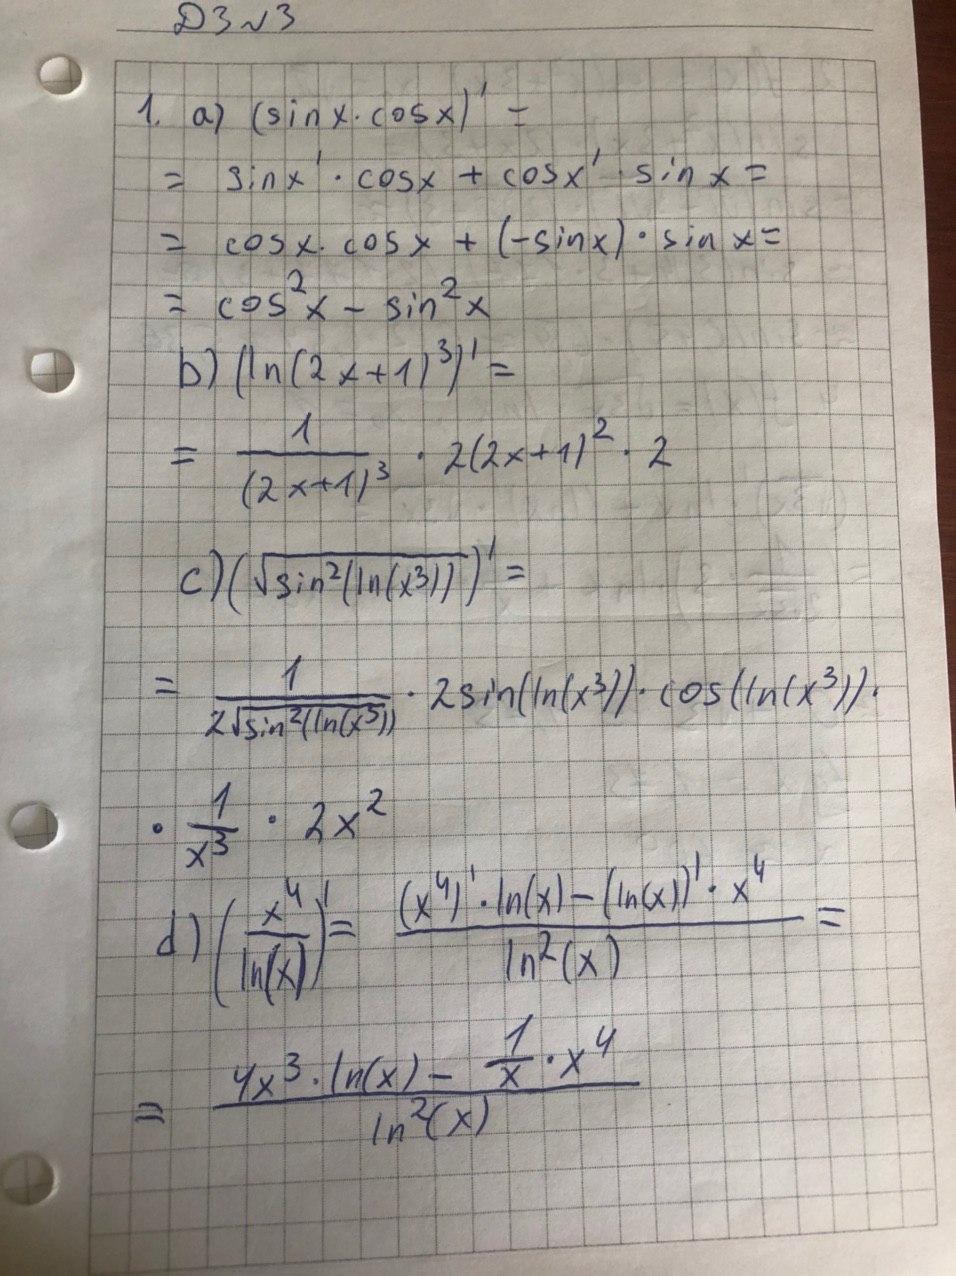 ДЗ №3
1. a) (sin x · cos x)' =
= sin x' · cos x + cos x' · sin x =
= cos x · cos x + (-sin x) · sin x =
= cos²x - sin²x
b) (ln(2x+1)³)' =
= 1/(2x+1)³ · 2(2x+1)² · 2
c) (√sin²(ln(x³)))' =
= 1/(2√sin²(ln(x³))) · 2sin(ln(x³)) · cos(ln(x³)) ·
· 1/x³ · 2x²
d) (x⁴/ln(x))' = ((x⁴)' · ln(x) - (ln(x))' · x⁴)/ln²(x) =
= (4x³ · ln(x) - 1/x · x⁴)/ln²(x)